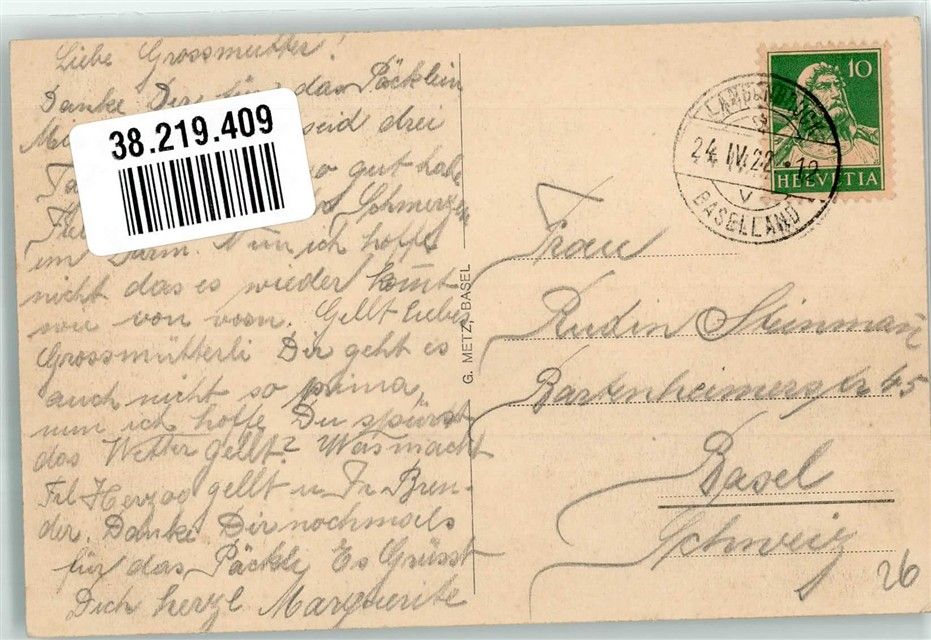 Liebe Grossmutter!
Danke Dir für das Päcklein
seid drei
so gut habe
Schmerzen
im Darm. Nun ich hoffe
nicht das es wieder kommt
von vorn. Gellt liebes
Grossmütterli Dir geht es
auch nicht so prima,
nun ich hoffe Du spürst
das Wetter gellt? Was macht
Frl Herzog gellt u Fr Bren-
der. Danke Dir nochmals
für das Päckli Es Grüsst
Dich herzl Marguerite
38.219.409
G. METZ, BASEL
10
HELVETIA
LANGENBRUCK
24.IV.22.12
V
BASELLAND
Frau
Rudin Steinmann
Bartenheimerstr 45
Basel
Schweiz
26